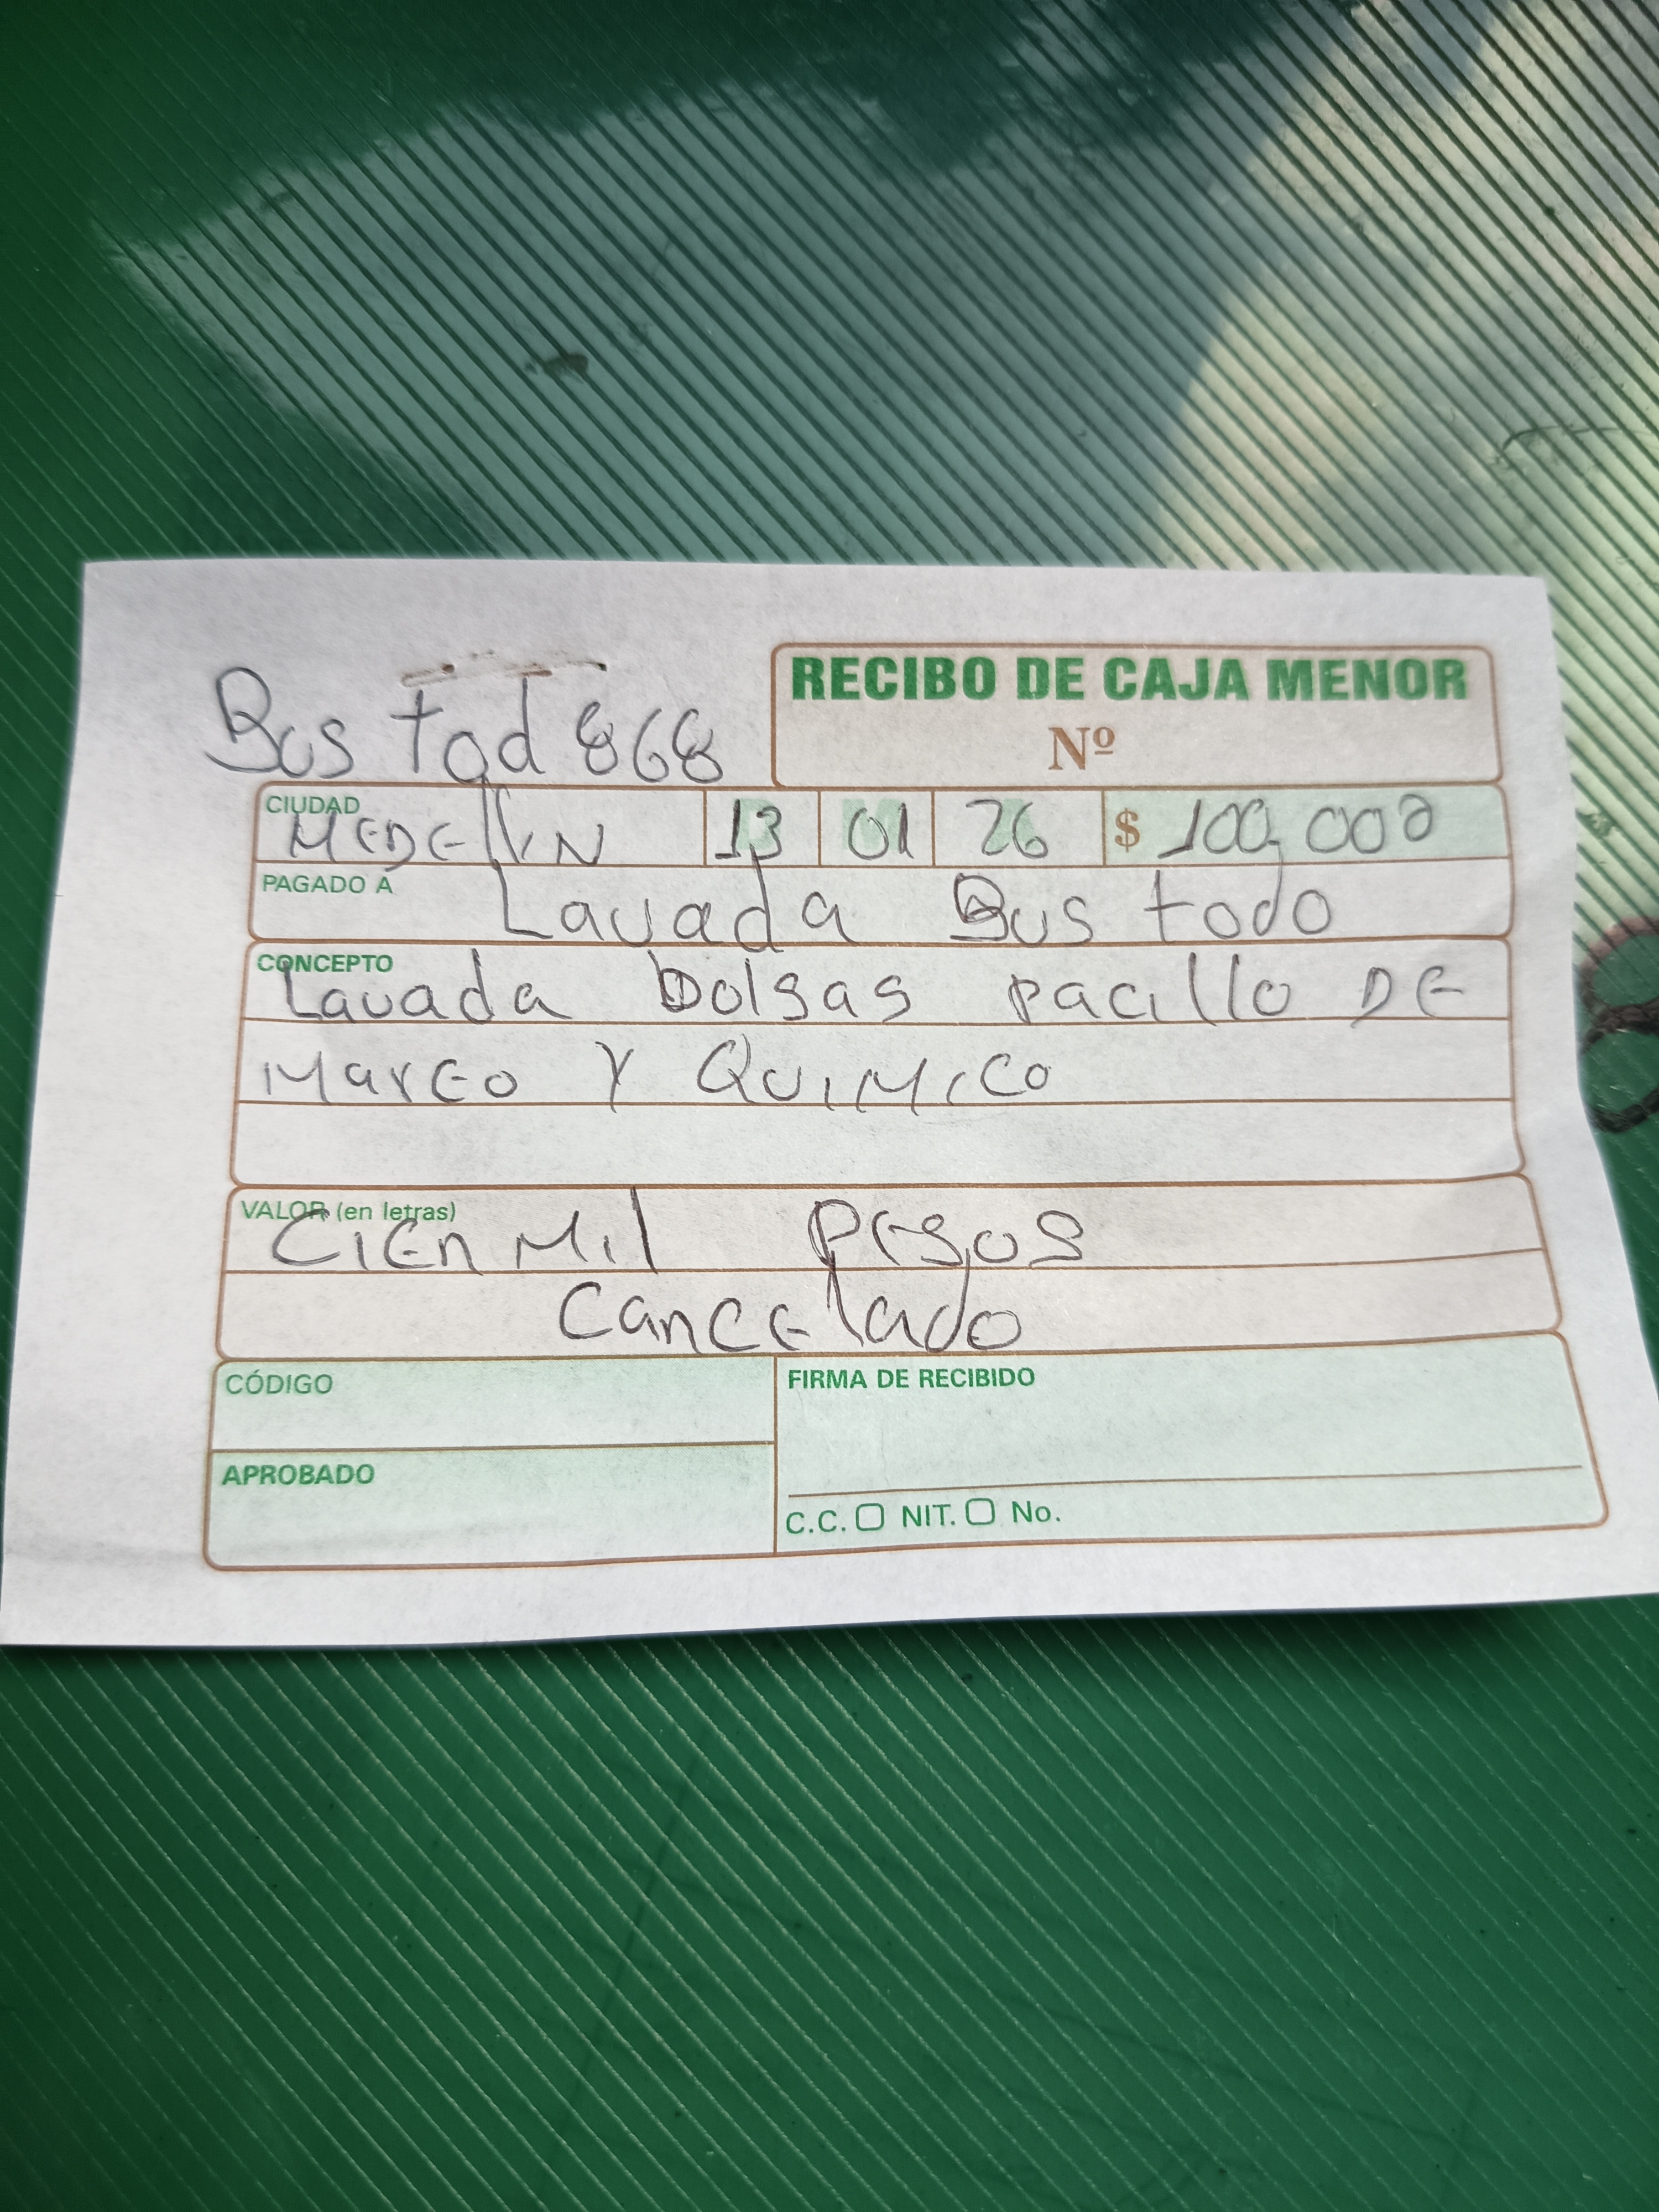 RECIBO DE CAJA MENOR
Bus tod 868
Nº
CIUDAD
MEDEllIN 13 01 26 $ 100,000
PAGADO A
Lavada Bus todo
CONCEPTO
Lavada bolsas pacillo DE
MarEo Y QUIMICO
VALOR (en letras)
CIEn Mil PESOS
CancElado
CÓDIGO
FIRMA DE RECIBIDO
APROBADO
C.C. NIT. No.